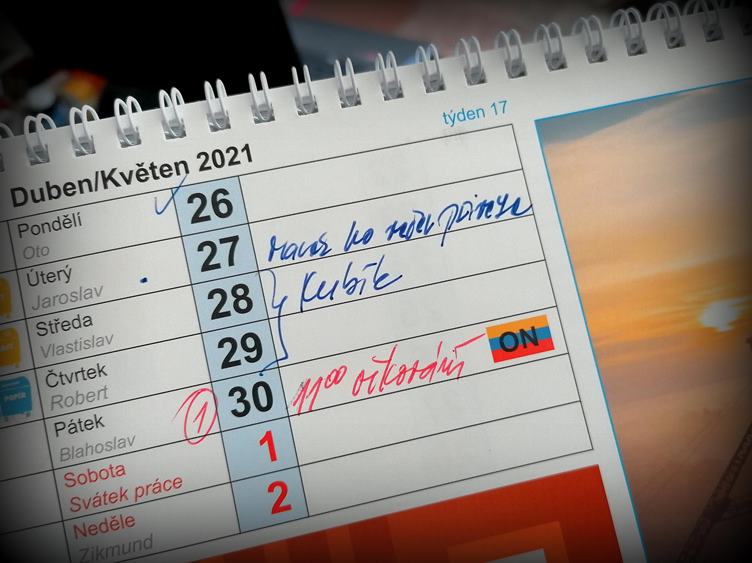 týden 17
Duben/Květen 2021
Pondělí 26
Oto
Úterý 27
Jaroslav
Středa 28 Kubík
Vlastislav
Čtvrtek 29 ON
Robert
Pátek 30 11⁰⁰ očkování
Blahoslav 1
Sobota 1
Svátek práce
Neděle 2
Zikmund